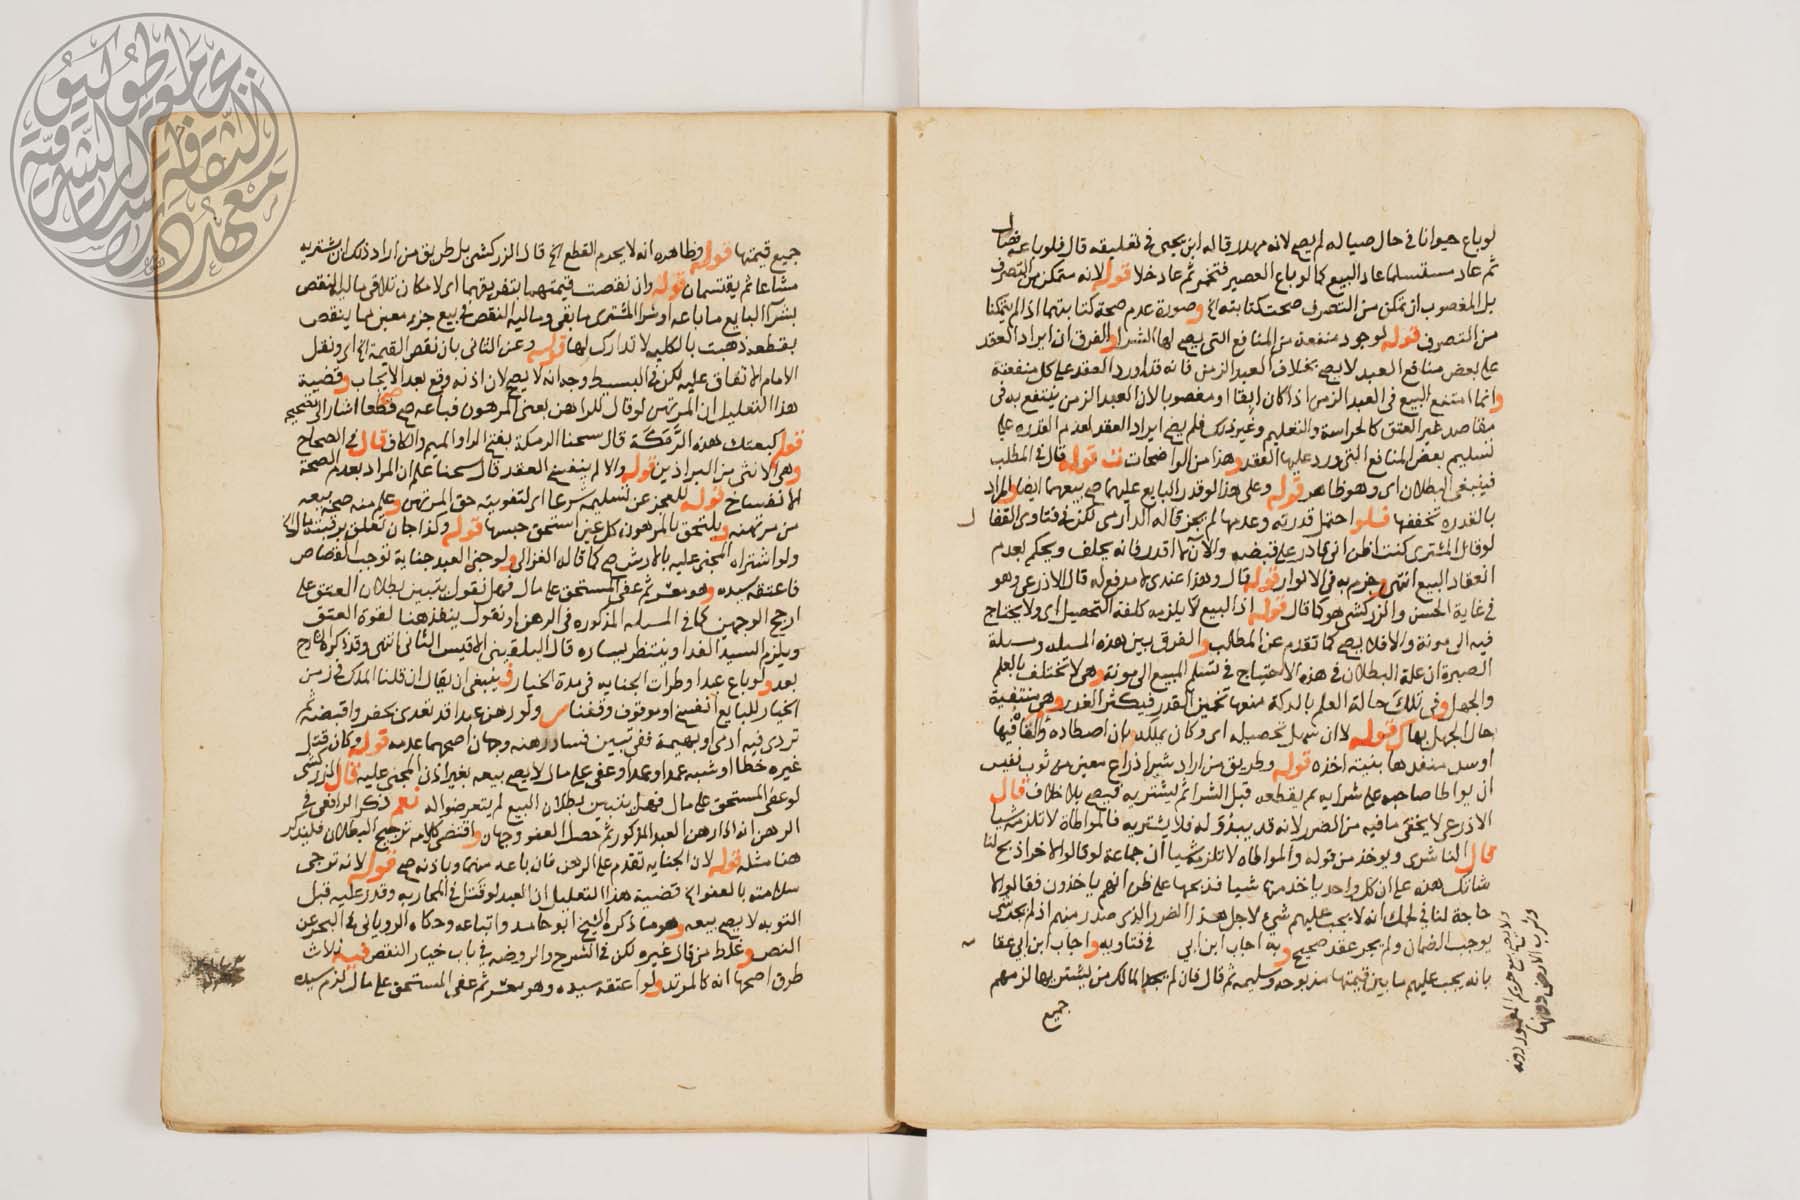 لوباع حيوانا في حال صياله لم يصح لانه مهدر قاله ابن يحيى في تعليقه قال فلو باعه فصال
ثم عاد مستسلما عاد البيع كما لو باع العصير فتخمر ثم عاد خلا قوله لانه متمكن من التصرف
بل المغصوب ان تمكن من التصرف صحت كتابته الخ وصورة عدم صحة كتابتهما اذا لم يتمكنا
من التصرف قوله لوجود منفعة من المنافع التي يصح لها الشرا والفرق ان ايراد العقد
على بعض منافع العبد لا يصح بخلاف العبد الزمن فانه قد اورد العقد على كل منفعته
وانما امتنع البيع في العبد الزمن اذا كان ابقا او مغصوبا لان العبد الزمن ينتفع به في
مقاصد غير العتق كالحراسة والتعليم وغير ذلك فلم يصح ايراد العقد لعدم القدره على
تسليم بعض المنافع التي ورد عليها العقد وهذا من الواضحات ت قوله قال في المطلب
فينبغي البطلان اى وهو ظاهر قوله وعلى هذا لو قدر البايع عليهما صح بيعهما ايضا والمراد
بالقدره تحققها فلو احتمل قدرته وعدمها لم يجز قاله الدارمي لكن في فتاوى القفا
ل
لو قال المشترى كنت اظن انى قادر على قبضه والآن لا اقدر فانه يحلف ويحكم بعدم
انعقاد البيع انتهى وجزم به في الانوار قوله قال وهذا عندى لا مدفع له قال الاذرعى وهو
في غاية الحسن والزركشى هو كما قال قوله اذ البيع لا يلزمه كلفة التحصيل اى ولا يحتاج
فيه الى مونة والا فلا يصح كما تقدم عن المطلب والفرق بين هذه المسله ومسلة
الصبرة ان علة البطلان في هذه الاحتياج في تسلم المبيع الى مونة وهى لا تختلف بالعلم
والجهل وفي تلك حالة العلم بالدكة منعها تخمين القدر فيكثر الغدر وهى منتفية
حال الجهل بها ك قوله لا ان سهل تحصيله اى وكان يملكه بان اصطاده والقاه فيها
او سد منفذها بنية اخذه قوله وطريق من اراد شرا ذراع معين من ثوب نفيس
ان يواطا صاحبه على شرايه ثم يقطعه قبل الشرا ثم يشتريه فيصح بلا خلاف قال
الاذرعى لا يخفى ما فيه من الضرر لانه قد يبدو له فلا يشتريه فالمواطاة لا تلزمه شيا
قال الناشرى ويوخذ من قوله والمواطاه لا تلزمه شيا ان جماعة لو قالوا لاخر اذبح لنا
شاتك هذه على ان كل واحد ياخذ منها شيا فذبحها على ظن انهم ياخذون فقالوا لا
حاجة لنا في لحمك انه لا يجب عليهم شئ لاجل هذا الضرر الذى صدر منهم اذ لم يجد شى
يوجب الضمان ولم يجر عقد صحيح وبه اجاب ابن ابى في فتاويه واجاب ابن ابى عقا
مة
بانه يجب عليهم ما بين قيمتها مذبوحه وسليمه ثم قال فان لم يجد المالك من يشتريها لزمهم
جميع
ولا يصح بيع حريم المعمور دونه
وشرب الارض دونها
جميع قيمتها قوله وظاهره انه لا يحرم القطع الخ قال الزركشى بل طريق من اراد ذلك ان يشتريه
مشاعا ثم يقتسمان قوله وان نقصت قيمتهما بتفريقهما اى لامكان تلافي ماليه النقص
بشرا البايع ما باعه او شرا المشترى ما بقى وماليه النقص في بيع جزء معين مما ينقص
بقطعه ذهبت بالكليه لا تدارك لها قوله وعن الثانى بان نقص القيمة الخ اى ونقل
الامام الاتفاق عليه لكن في البسيط وجه انه لا يصح لان اذنه وقع بعد الايجاب وقضية
هذا التعليل ان المرتهن لو قال للراهن بعنى المرهون فباعه صح قطعا اشار الى تصحيحه
قوله كبعتك هذه الرَّمَكَة قال شيخنا الرمكة بفتح الراو الميم والكاف قال في الصحاح
وهى الانثى من البراذين قوله والا لم ينفسخ العقد قال شيخنا علم ان المراد بعدم الصحة
الانفساخ قوله للعجز عن تسليمه شرعا اى لتفويته حق المرتهن وعلم منه صحة بيعه
من مرتهنه ويلتحق بالمرهون كل عين استحق حبسها قوله وكذا جان تعلق برقبته مال الخ
ولو اشتراه المجنى عليه بالارش صح كما قاله الغزالى ولو جنى العبد جناية توجب القصاص
فاعتقه سيده وهو معسر ثم عفى المستحق على مال فهل نقول يتبين بطلان العتق على
ارجح الوجهين كما في المسله المذكوره في الرهن او نقول ينفذ هنا لقوة العتق
ويلزم السيد الفدا وينتظر يساره قال البلقينى الاقيس الثانى انتهى وقد ذكر الشارح
بعد ولو باع عبدا وطرات الجنايه في مدة الخيار فينبغى ان يقال ان قلنا الملك في زمن
الخيار للبايع انفسخ او موقوف وقفنا س ولو رهن عبدا قد تعدى بحفر واقبضه ثم
تردى فيه ادمى او بهيمة ففى تبين فساد رهنه وجهان اصحهما عدمه قوله وكان قتل
غيره خطا او شبه عمد او عمدا وعفى على مال لا يصح بيعه بغير اذن المجنى عليه قال الزركشى
لو عفى المستحق على مال فهل يتبين بطلان البيع لم يتعرضوا له نعم ذكر الرافعى في
الرهن انه اذا رهن العبد المذكور ثم حصل العفو وجهان واقتضى كلامه ترجيح البطلان فليذكر
هنا مثله قوله لان الجنايه تقدم على الرهن فان باعه منهما وباذنه صح قوله لانه ترجى
سلامته بالعفو الخ قضية هذا التعليل ان العبد لو قتل في المحاربه وقدر عليه قبل
التوبه لا يصح بيعه وهو ما ذكره الشيخ ابو حامد واتباعه وحكاه الرويانى في البحر عن
النص وغلط من قال غيره لكن في الشرح والروضه في باب خيار النقص فيه ثلاث
طرق اصحها انه كالمرتد ولو اعتقه سيده وهو معسر ثم عفى المستحق على مال لزم سيده
معهد الثقافة والدراسات الشرقية
جامعة طوكيو